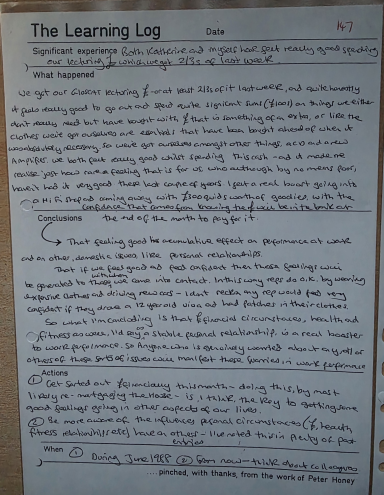 The Learning Log Date 147
Significant experience Both Katherine and myself have felt really good spending
our lecturing £ which we got 2/3s of last week
What happened
We got our lecturing £ - or at least 2/3s of it last week, and quite honestly
it feels really good to go out and spend quite significant sums (£100s) on things we either
don't really need but have bought with £ that is something of an extra, or like the
clothes we've got ourselves are essentials that have been bought ahead of when it
was absolutely necessary. So we've got ourselves amongst other things, a CD and a new
Amplifier. We both felt really good whilst spending this cash - and it made me
realise just how rare a feeling that is for us who although by no means poor,
haven't had it very good these last couple of years. I get a real boost going into
a Hi Fi shop and coming away with £300 quids worth of goodies, with the
confidence that comes from knowing the £ will be in the bank at
Conclusions the end of the month to pay for it.
That feeling good has a cumulative effect on performance at work
and on other, domestic issues like personal relationships.
That if we feel good and feel confident then those feelings will
be generated to those with whom we come into contact. In this way reps do o.k. by wearing
expensive clothes and driving new cars - I don't reckon any rep would feel very
confident if they drove a 12 year old Viva and had patches in their clothes.
So what I'm concluding is that £ financial circumstances, health and
fitness as well, I'd say a stable personal relationship, is a real booster
to work performance. So anyone who is genuinely worried about any or all
others of these sorts of issues will manifest these worries, in work performance
Actions
① Get sorted out financially this month - doing this, by most
likely re-mortgaging the House - is, I think, the key to getting some
good feelings going in other aspects of our lives.
② Be more aware of the influences personal circumstances (£, health
fitness relationships etc) have on others - I've noted this in plenty of past
entries
When ① During June 1988 ② From now - think about colleagues
....pinched, with thanks, from the work of Peter Honey